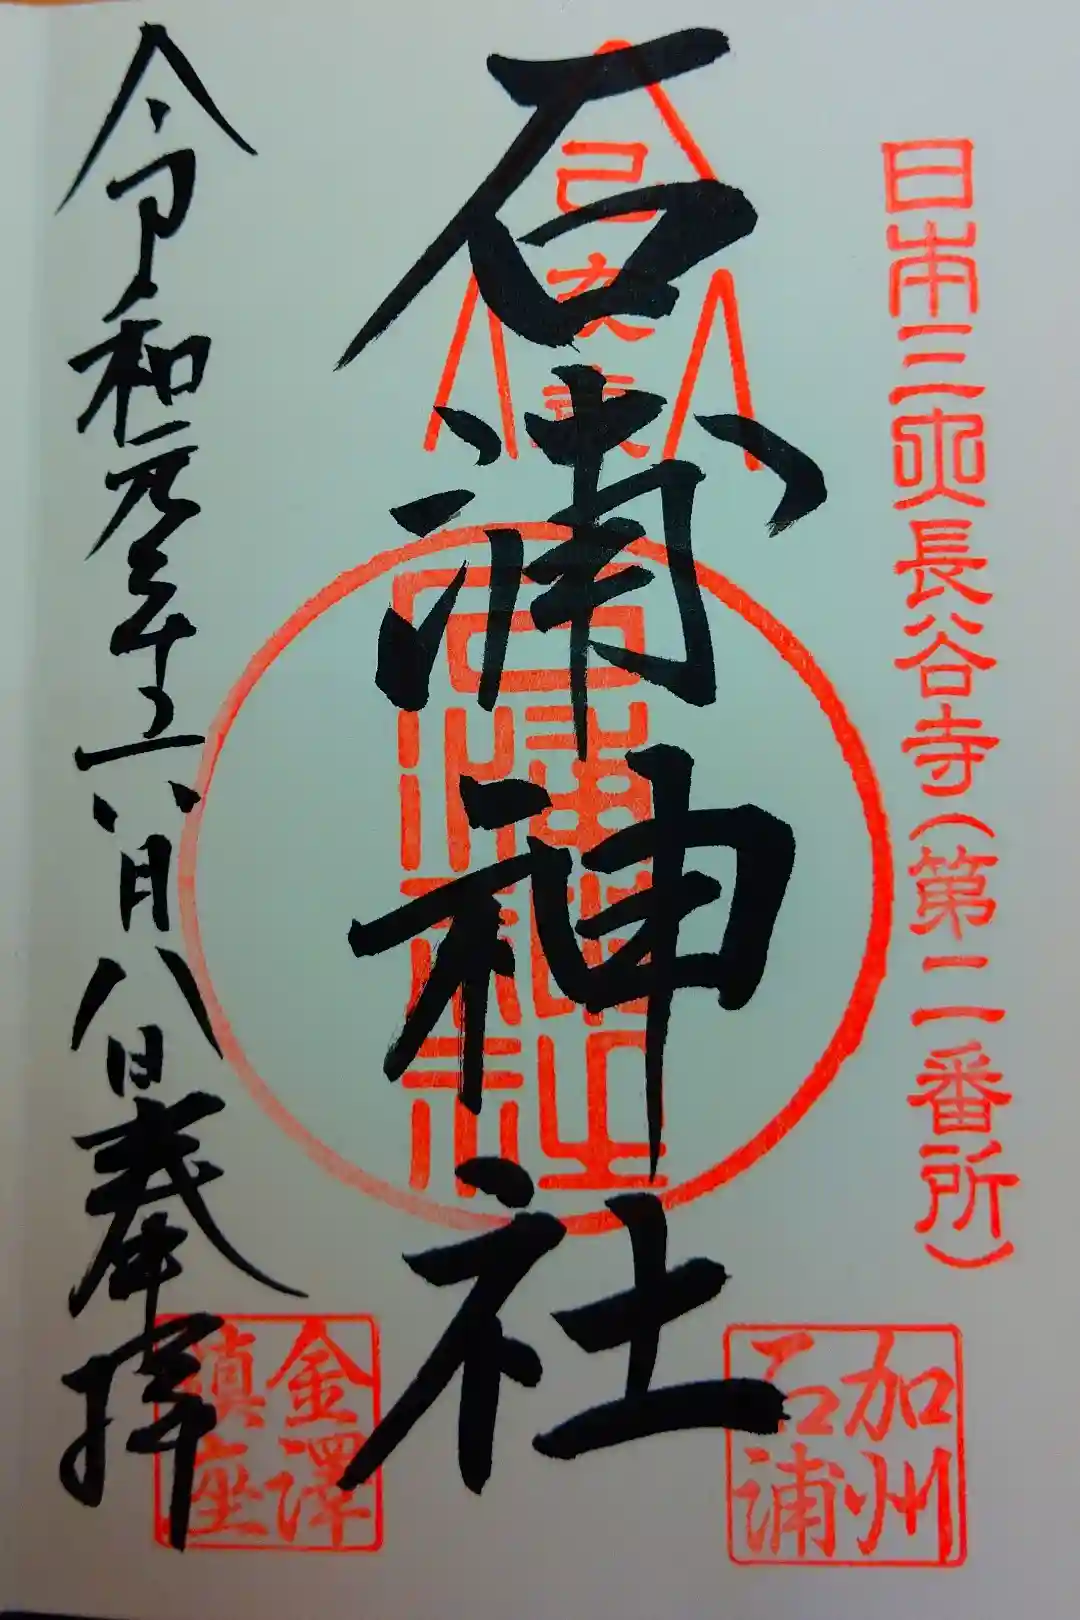 日本三長谷寺(第二番所)
加州
石浦
石浦神社
石浦神社
令和元年六月八日奉拝
金澤
鎮座